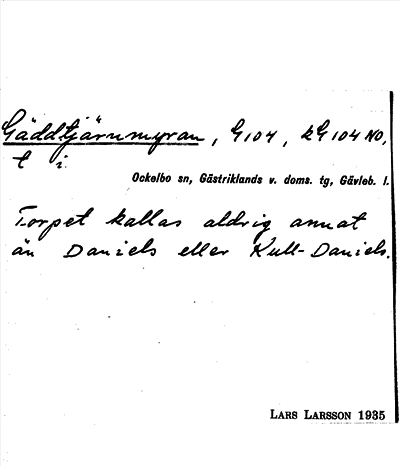 Gäddtjärnmyran, G104, kG104NO,
t i
Ockelbo sn, Gästriklands v. doms. tg, Gävleb. l.
Torpet kallas aldrig annat
än Daniels eller Kull-Daniels.
LARS LARSSON 1935